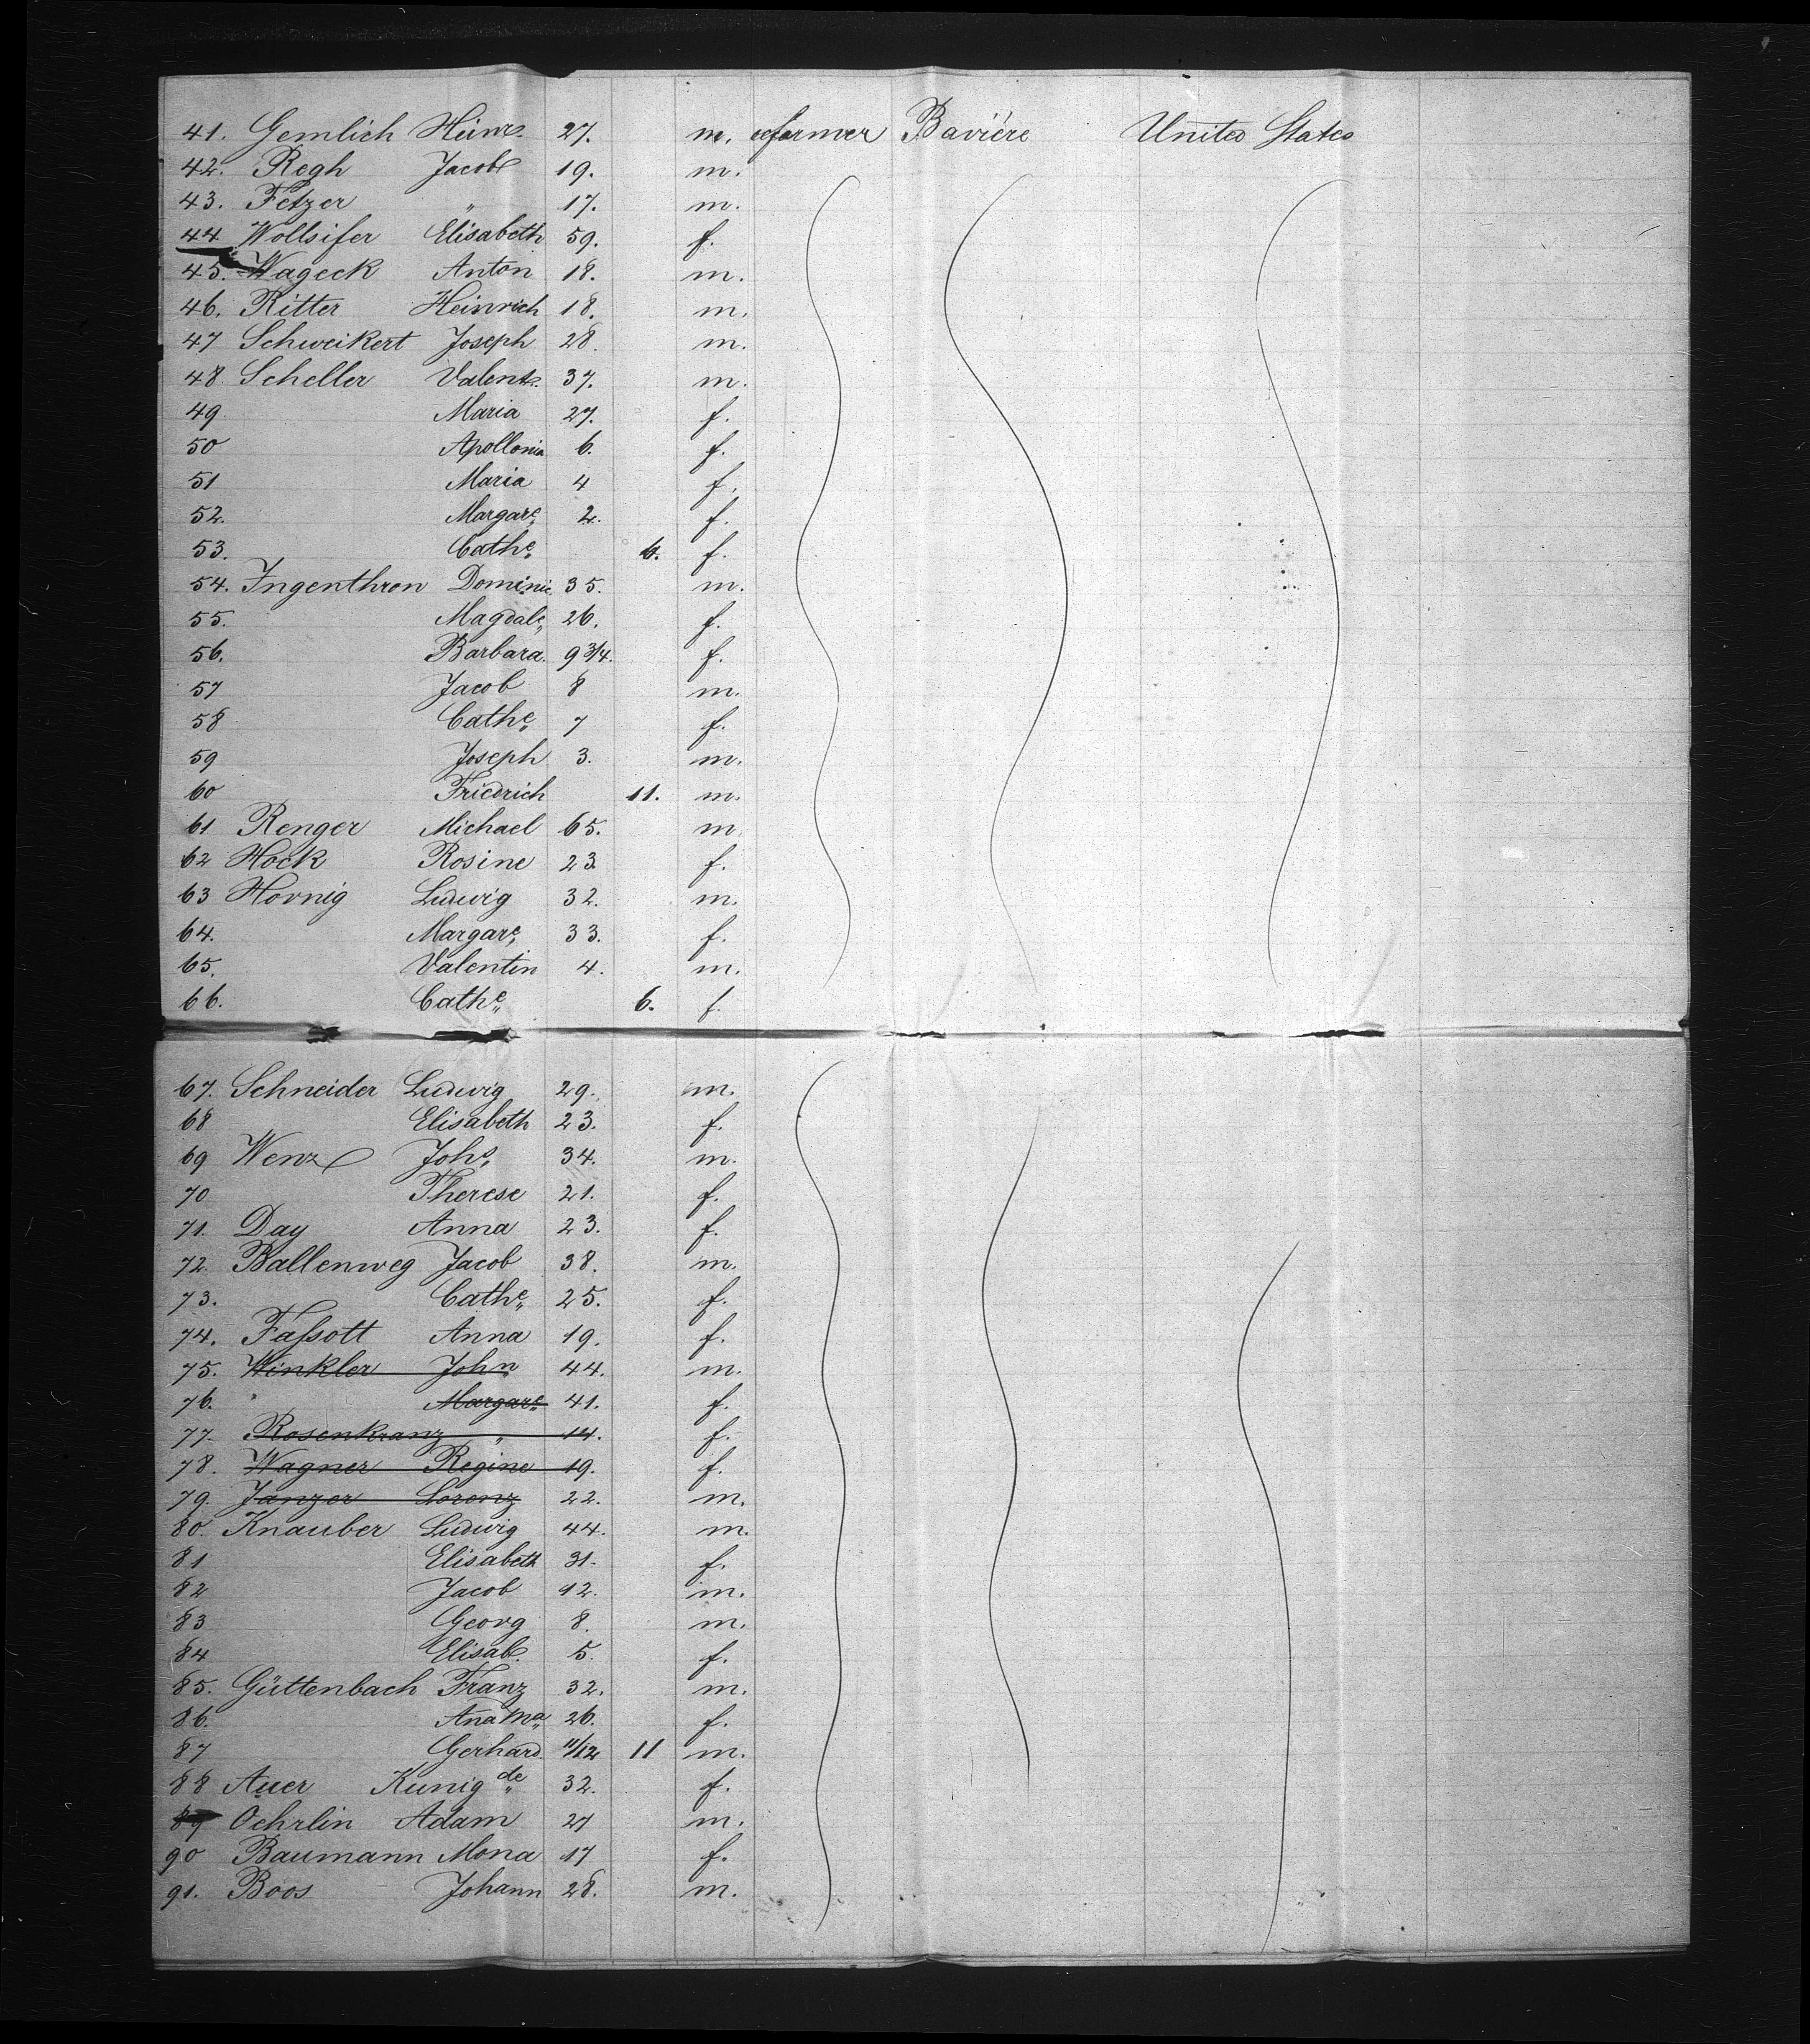 41. Gemlich Heinr. 27. m. farmer Bavière United States
42. Regh Jacob 19. m.
43. Fetzer " 17. m.
44 Wollsifer Elisabeth 59. f.
45. Wageck Anton 18. m.
46. Ritter Heinrich 18. m.
47 Schweikert Joseph 28. m.
48 Scheller Valent. 37. m.
49. Maria 27. f.
50 Apollonia 6. f.
51 Maria 4 f.
52. Margare 2. f.
53. Cathe 6. f.
54. Ingenthron Dominic 35. m.
55. Magdale 26. f.
56. Barbara. 9 3/4. f.
57 Jacob 8 m.
58 Cathe 7 f.
59 Joseph 3. m.
60 Friedrich 11. m.
61 Renger Michael 65. m.
62 Hock Rosine 23. f.
63 Hornig Ludwig 32. m.
64. Margare 33. f.
65. Valentin 4. m.
66. Cathe 6. f.
67. Schneider Ludwig 29. m.
68 Elisabeth 23. f.
69 Wenz Johs 34. m.
70 Therese 21. f.
71. Day Anna 23. f.
72. Ballenweg Jacob 38. m.
73. Cathe 25. f.
74. Faſsott Anna 19. f.
75. Winkler John 44. m.
76. " Margare 41. f.
77. Rosenkranz " 14. f.
78. Wagner Regine 19. f.
79. Janzer Lorenz 22. m.
80. Knauber Ludwig 44. m.
81 Elisabeth 31. f.
82 Jacob 12. m.
83 Georg 8. m.
84 Elisab. 5. f.
85. Güttenbach Franz 32. m.
86. Ana Ma 26. f.
87 Gerhard. 11/12 11 m.
88 Auer Kunigde 32. f.
89 Oehrlin Adam 27 m.
90 Baumann Mona 17 f.
91. Boos Johann 28. m.